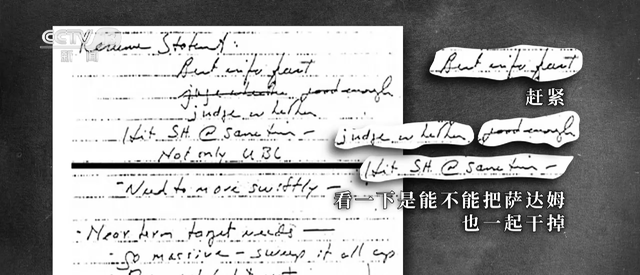 CCTV
新闻
Best info fast
judge whether good enough
judge whether
Hit SH @ same time –
Not only UBL
- Need to move swiftly –
- Near term target needs —
- go massive – sweep it all up
Best info fast
赶紧
judge whether good enough
Hit SH @ same time –
看一下是能不能把萨达姆
也一起干掉